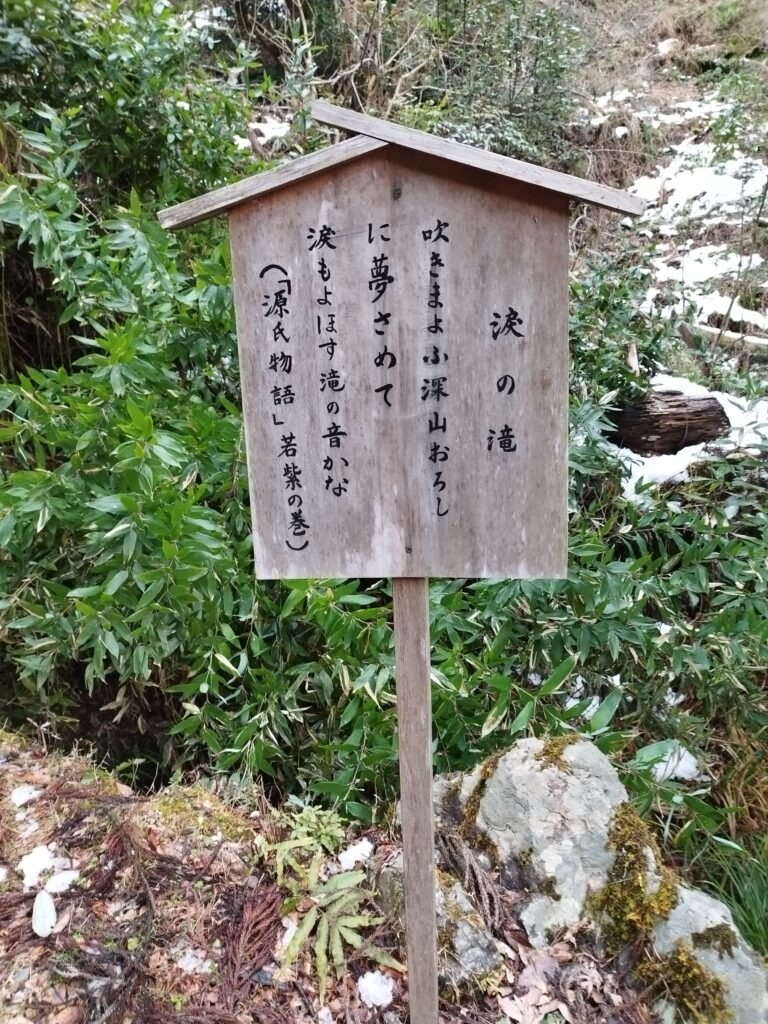 涙の滝
吹きまよふ深山おろし
に夢さめて
涙もよほす滝の音かな
（「源氏物語」若紫の巻）